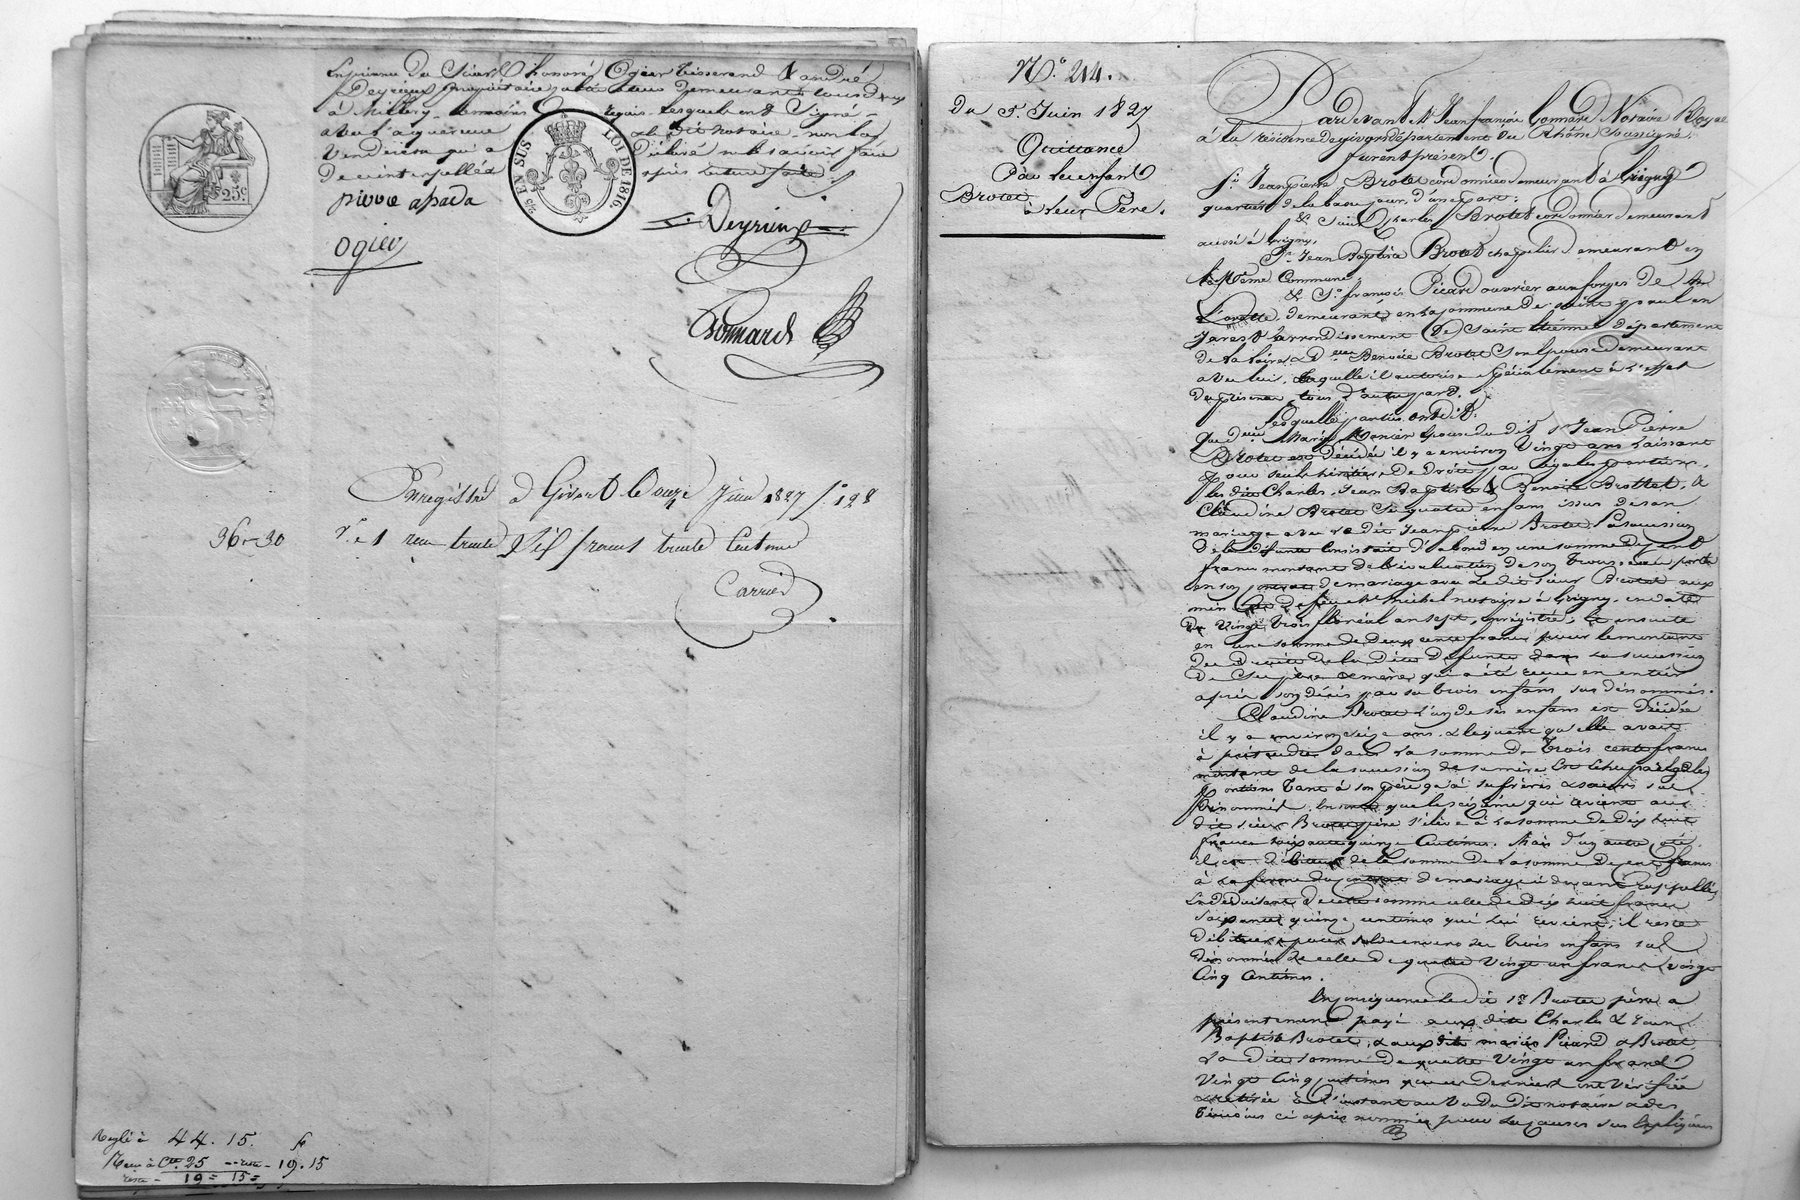 En présence du Sieur Honoré Ogier tisserand & andré
Deyrieux propriétaire demeurants tous deux
à Millery, témoins requis lesquels ont Signé
avec l'aquereur & le dit notaire, non la
Venderesse qui a Déclaré ne le savoir faire
De ce interpellée après lecture faite.
EN SUS
LOI DE 1816
25c.
pierre
Ogier
Deyrieux
Bonnard
Enregistré à Givors le onze Juin 1827 f.o 128
36 - 30
reçu trente Six francs trente Centimes
Carrier
44. 15.
25
19. 15
19 = 15 =
N.o 214.
Du 5 Juin 1827
Quittance
Par les enfants
Brotet
à leur Père.
Pardevant Me Jean françois Bonnard Notaire Royal
à la résidence de givors département du Rhône Soussigné.
furent présents.
Sr Jean Pierre Brotet cordonnier demeurant à Grigny
quartier de la d'une part:
& Sieur Charles Brotet cordonnier demeurant
aussi à Grigny,
Sr Jean Baptiste Brotet chapelier demeurant en
la Même Commune,
& Sr françois Picard ouvrier aux forges de
demeurant en la commune de saint paul en
Jarest arrondissement De Saint étienne département
de la loire & Benoite Brotet Son Epouse demeurant
avec lui, laquelle il autorise spécialement à l'effet
Des présentes, tous d'autre part.
Lesquelles parties ont dit:
Que Marie Epouse du dit Sr Jean Pierre
Brotet est Décédée il y a environ Vingt ans laissant
pour seuls héritiers De Droit par égales portions,
les dits Charles, Jean Baptiste & Benoite Brottet, &
Claudine Brotet Ses quatre enfans issus de son
mariage avec le dit Jean pierre Brotet. La succession
de la défunte Consistait d'abord en une somme de cent
francs montant de l'évaluation de son trousseau porté
en son contrat de mariage avec le dit sieur Brotet aux
minutes de feu Me Michel notaire à Grigny, en date
Du Vingt trois floréal an sept, enregistré, & ensuite
en une somme de Deux cents francs pour le montant
Des Droits de la Dite Défunte dans la succession
De Ses père & mère, qui a été reçue en entier
après son décès par ses trois enfans sus dénommés.
Claudine Brotet L'un de ses enfans est Décédée
il y a environ seize ans. & le quart qu'elle avait
à prétendre dans la somme De Trois cents francs
montant de la succession de sa mère est échu par égales
portions tant à son père qu'à ses frères & sœurs sus
Dénommés. En sorte que le seizième qui revient au
dit sieur Brotet père s'élève à la somme de Dix huit
francs soixante quinze Centimes. Mais d'un autre côté
il est débiteur de la somme de la somme de cent francs
à la forme du contrat de mariage ci devant rappellé,
En déduisant de cette somme celle de dix huit francs
soixante quinze centimes qui lui revient, il reste
Débiteur pour solde envers ses trois enfans sus
dénommés de celle de quatre Vingt un francs Vingt
Cinq Centimes.
En conséquence le dit Sr Brotet père a
présentement payé aux dits Charles & Jean
Baptiste Brotet, & aux dits mariés Picard & Brotet
La dite somme De quatre Vingt un francs
Vingt Cinq centimes que ces Derniers ont Vérifiée
& retirée à l'instant au Vu du Dit notaire & des
témoins ci après nommés pour les causes sus Expliquées